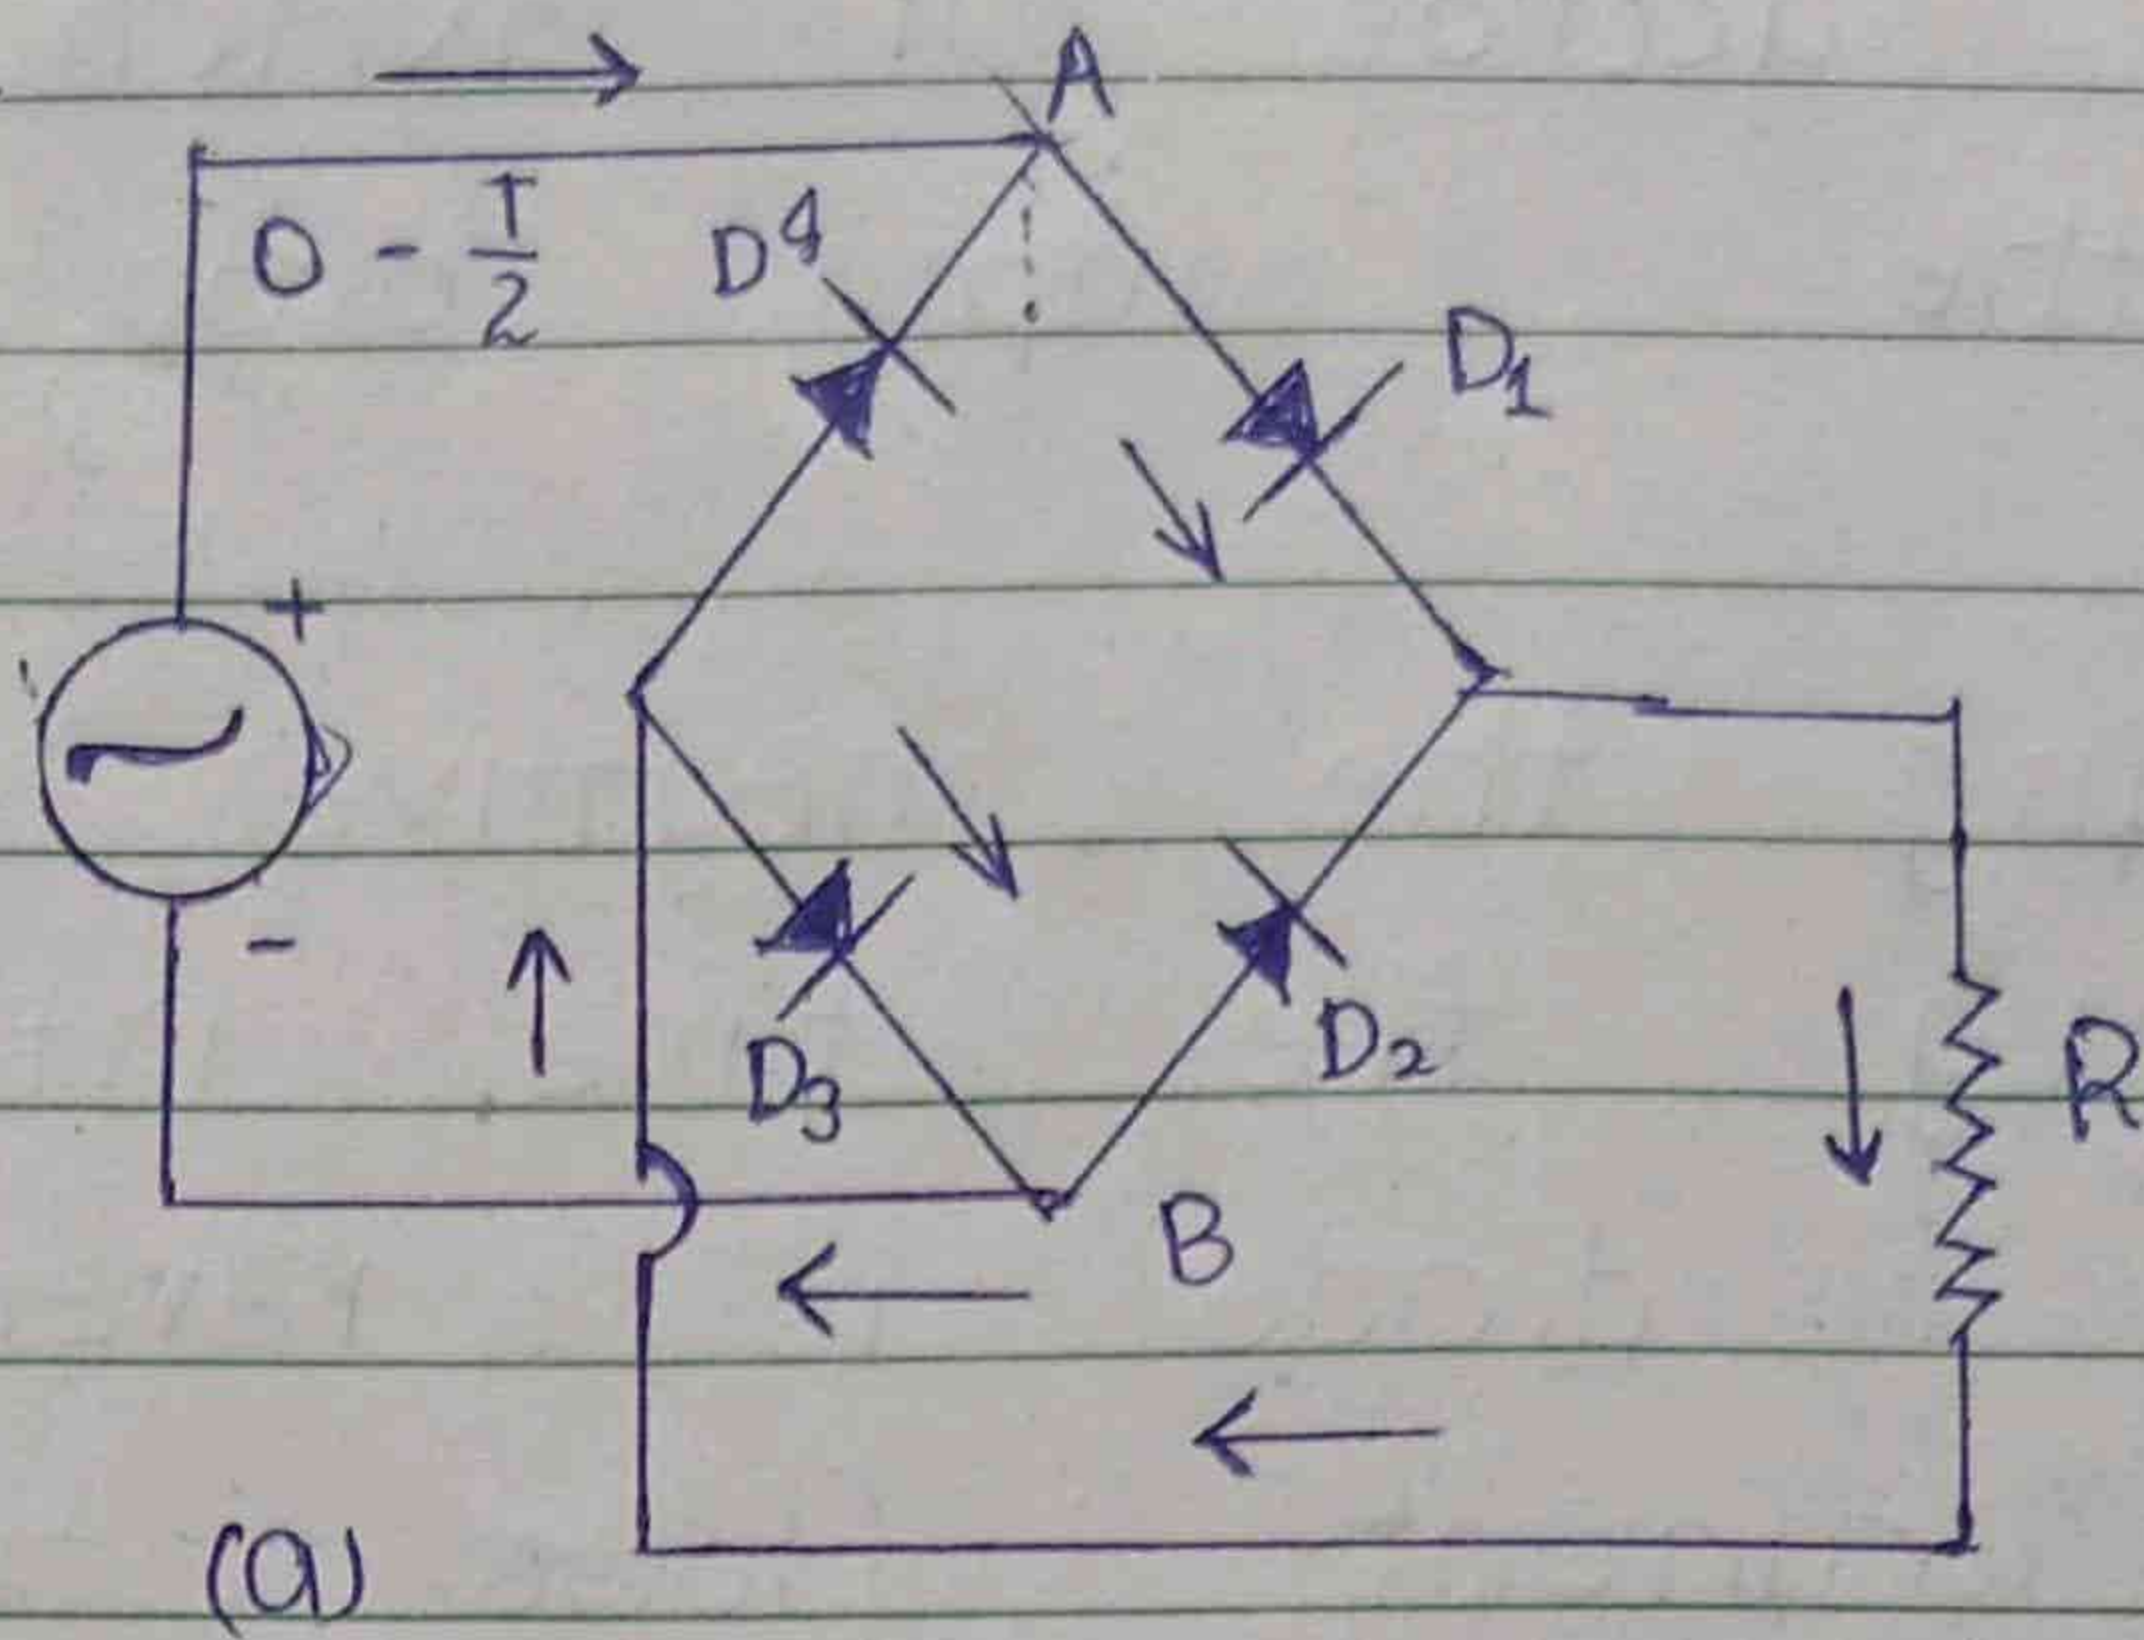 A
0 - T/2
D4
D1
+
-
D3
D2
R
B
(a)